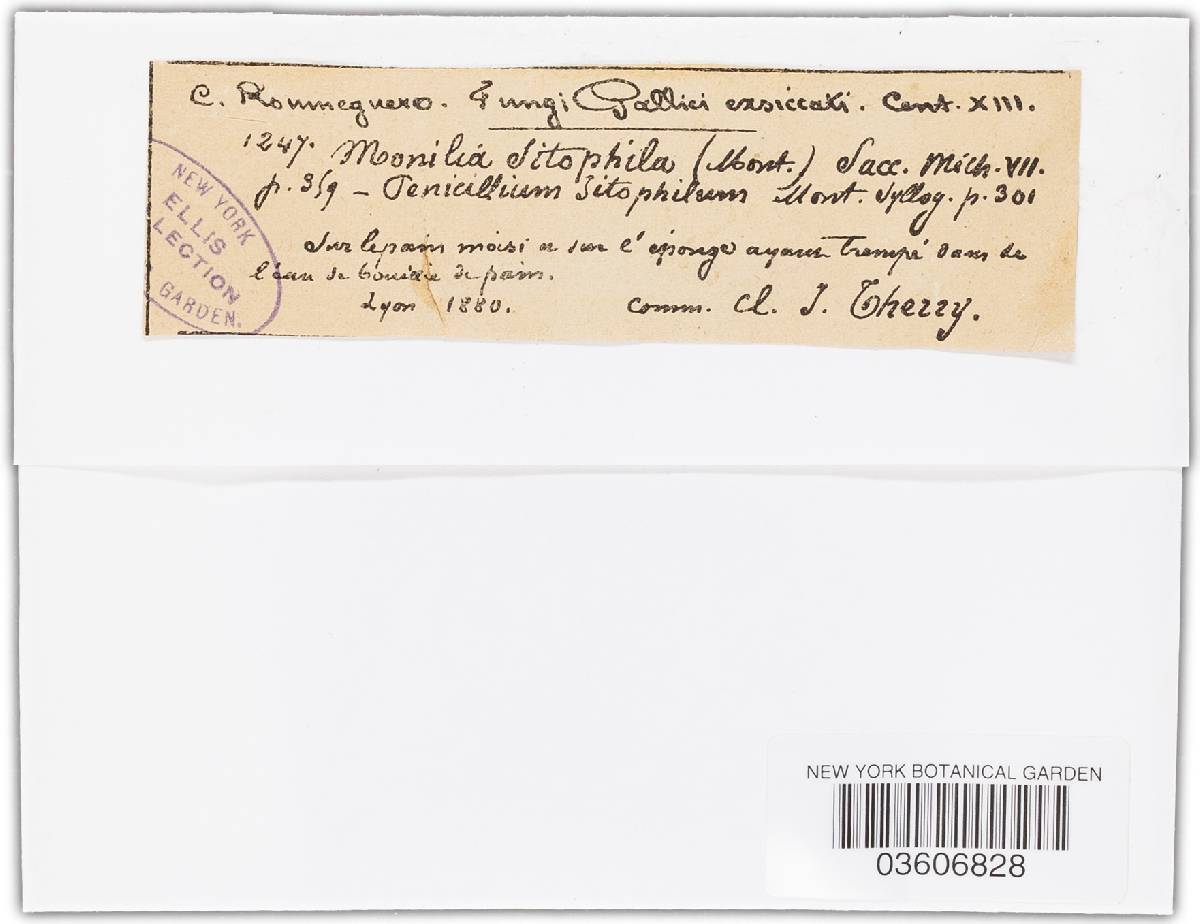 C. Roumeguere. Fungi Gallici exsiccati. Cent. XIII.
1247. Monilia Sitophila (Mont.) Sacc. Mich. VII.
p. 359 – Penicillium Sitophilum Mont. Syllog. p. 301
Sur le pain moisi et sur l'éponge ayant trempé dans de
l'eau de de pain.
Lyon 1880. comm. Cl. J. Therry.
NEW YORK
ELLIS
LECTION
GARDEN.
NEW YORK BOTANICAL GARDEN
03606828